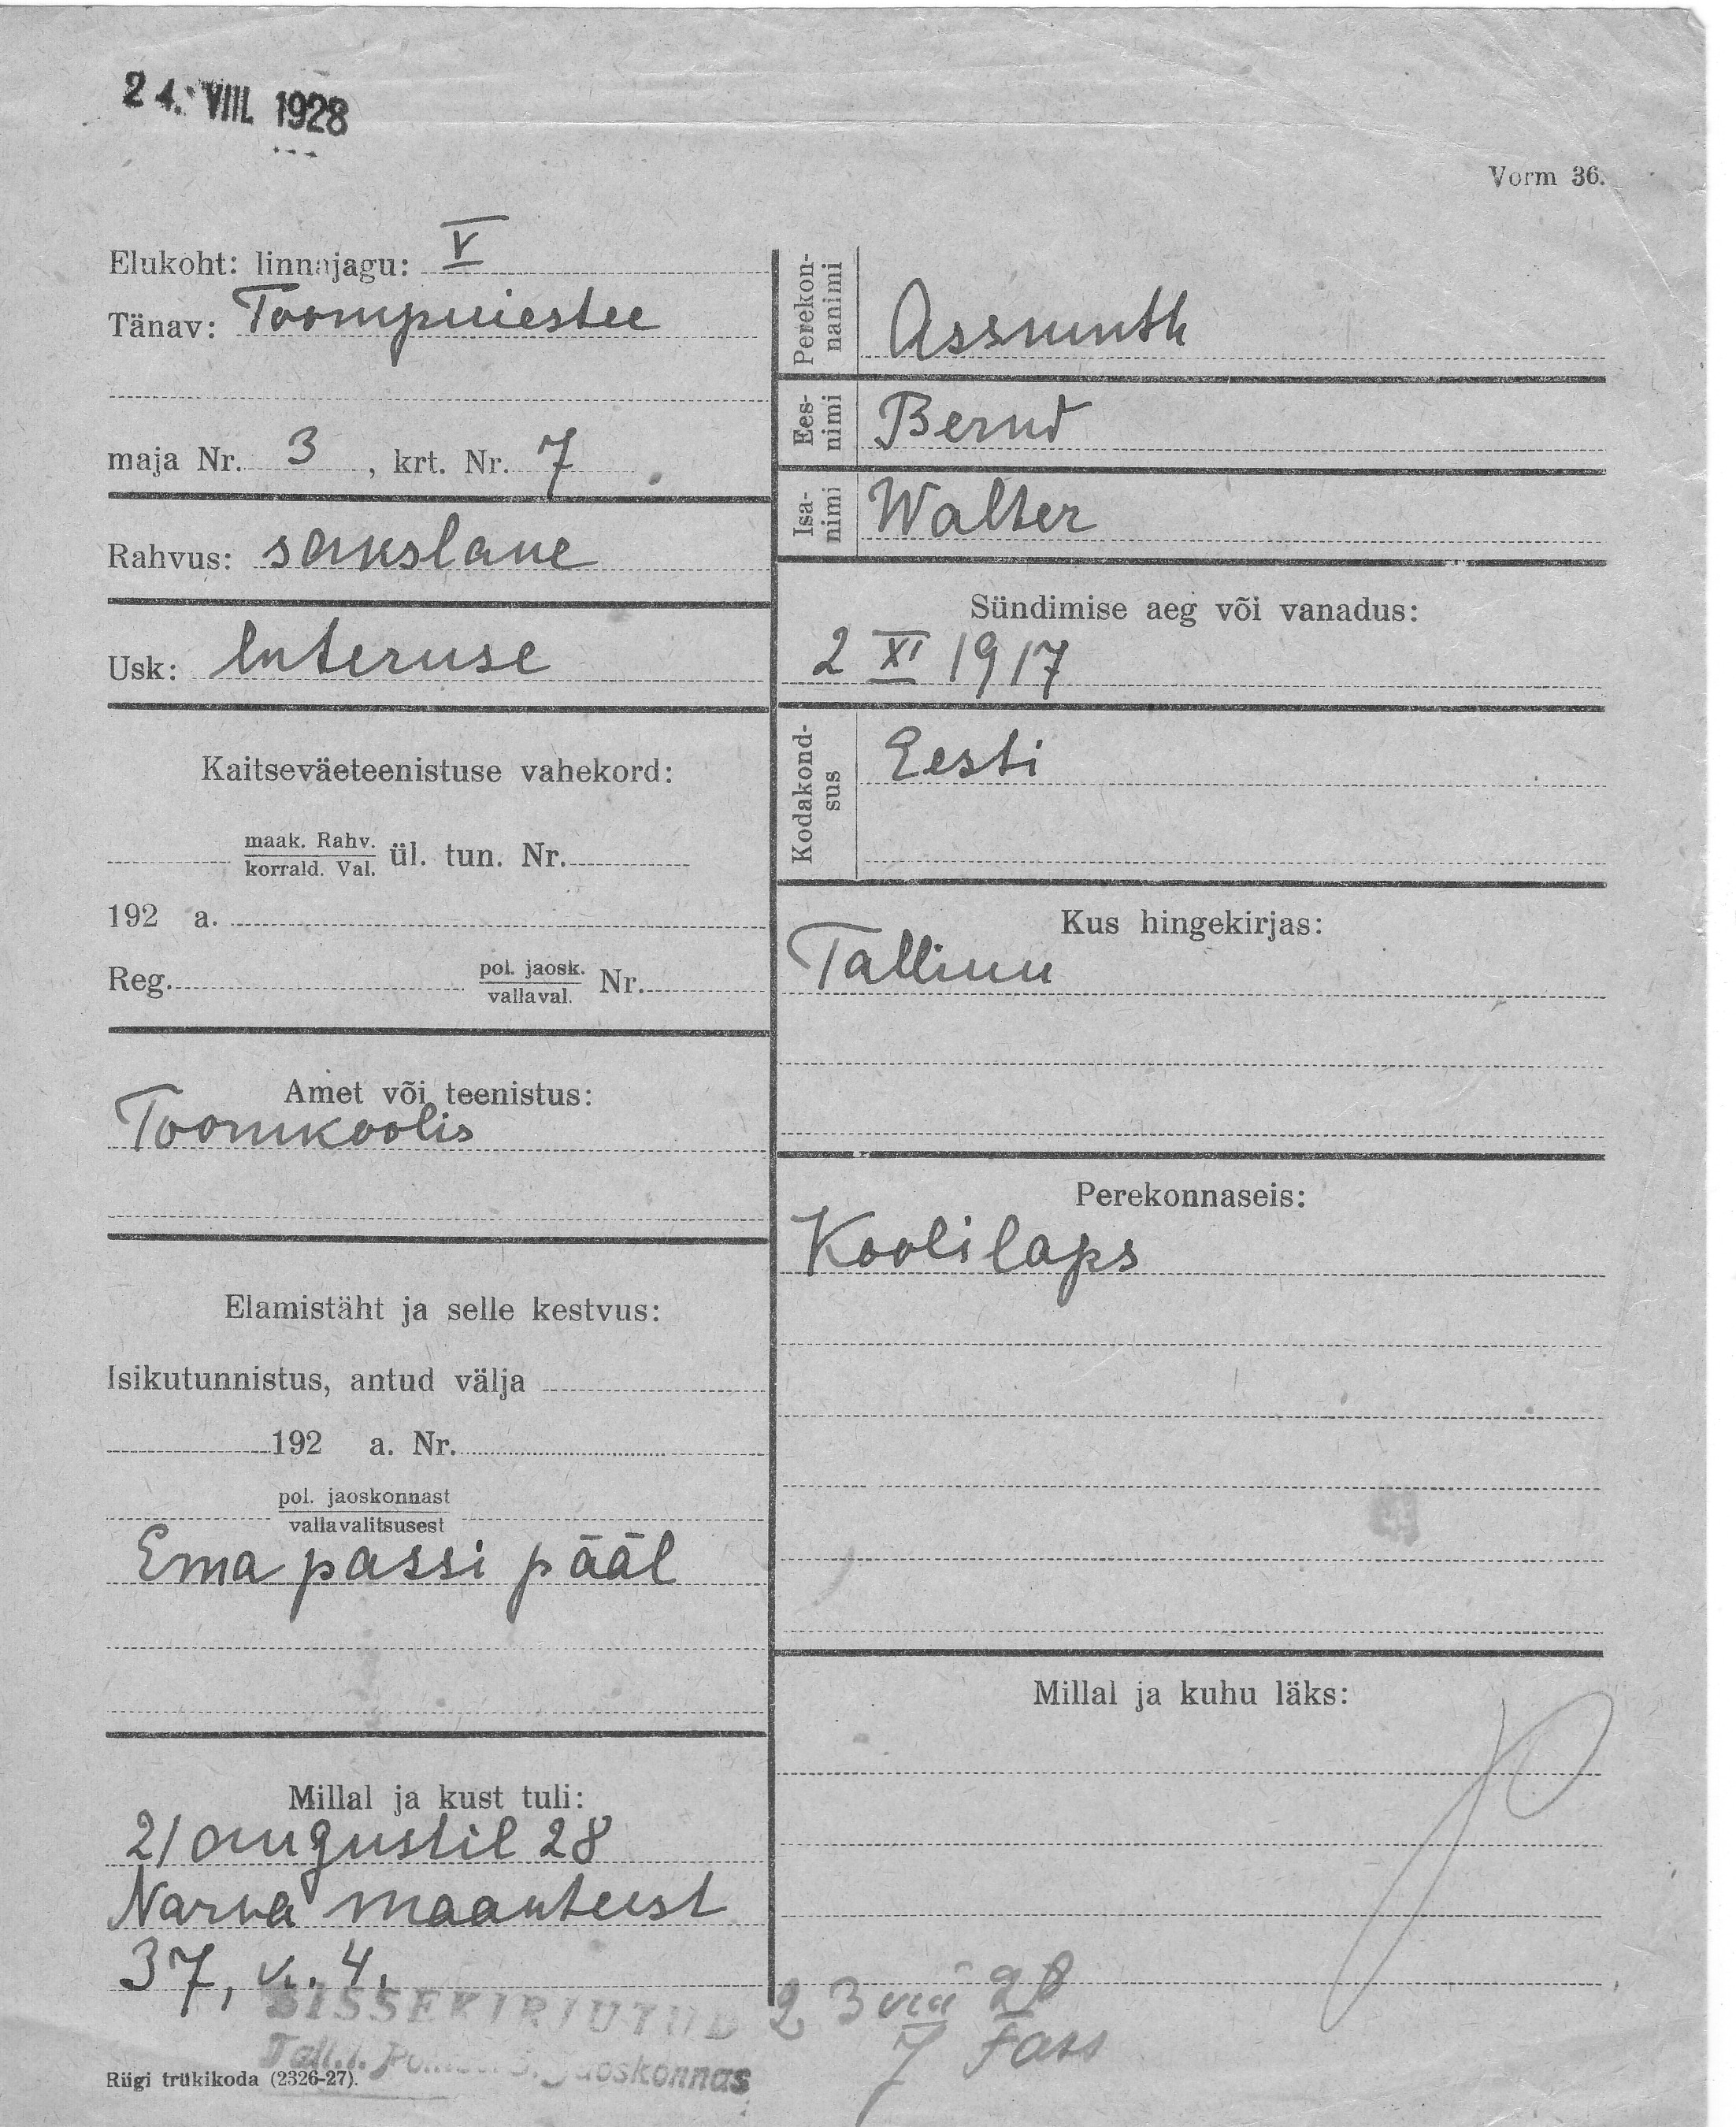 24. VIII. 1928
Vorm 36.
Elukoht: linnajagu: V
Tänav: Toompuiestee
maja Nr. 3, krt. Nr. 7
Rahvus: sakslane
Usk: luteruse
Kaitseväeteenistuse vahekord:
maak. Rahv.
korrald. Val. ül. tun. Nr.
192 a.
Reg. pol. jaosk.
vallaval. Nr.
Amet või teenistus:
Toomkoolis
Elamistäht ja selle kestvus:
Isikutunnistus, antud välja
192 a. Nr.
pol. jaoskonnast
vallavalitsusest
Ema passi pääl
Millal ja kust tuli:
21 augustil 28
Narva maanteest
37, k. 4.
Perekon-
nanimi
Assmuth
Ees-
nimi
Bernd
Isa-
nimi
Walter
Sündimise aeg või vanadus:
2 XI 1917
Kodakond-
sus
Eesti
Kus hingekirjas:
Tallinn
Perekonnaseis:
Koolilaps
Millal ja kuhu läks:
SISSEKIRJUTUD
Tall. jaoskonnas
23 VIII 28
Riigi trükikoda (2326-27).